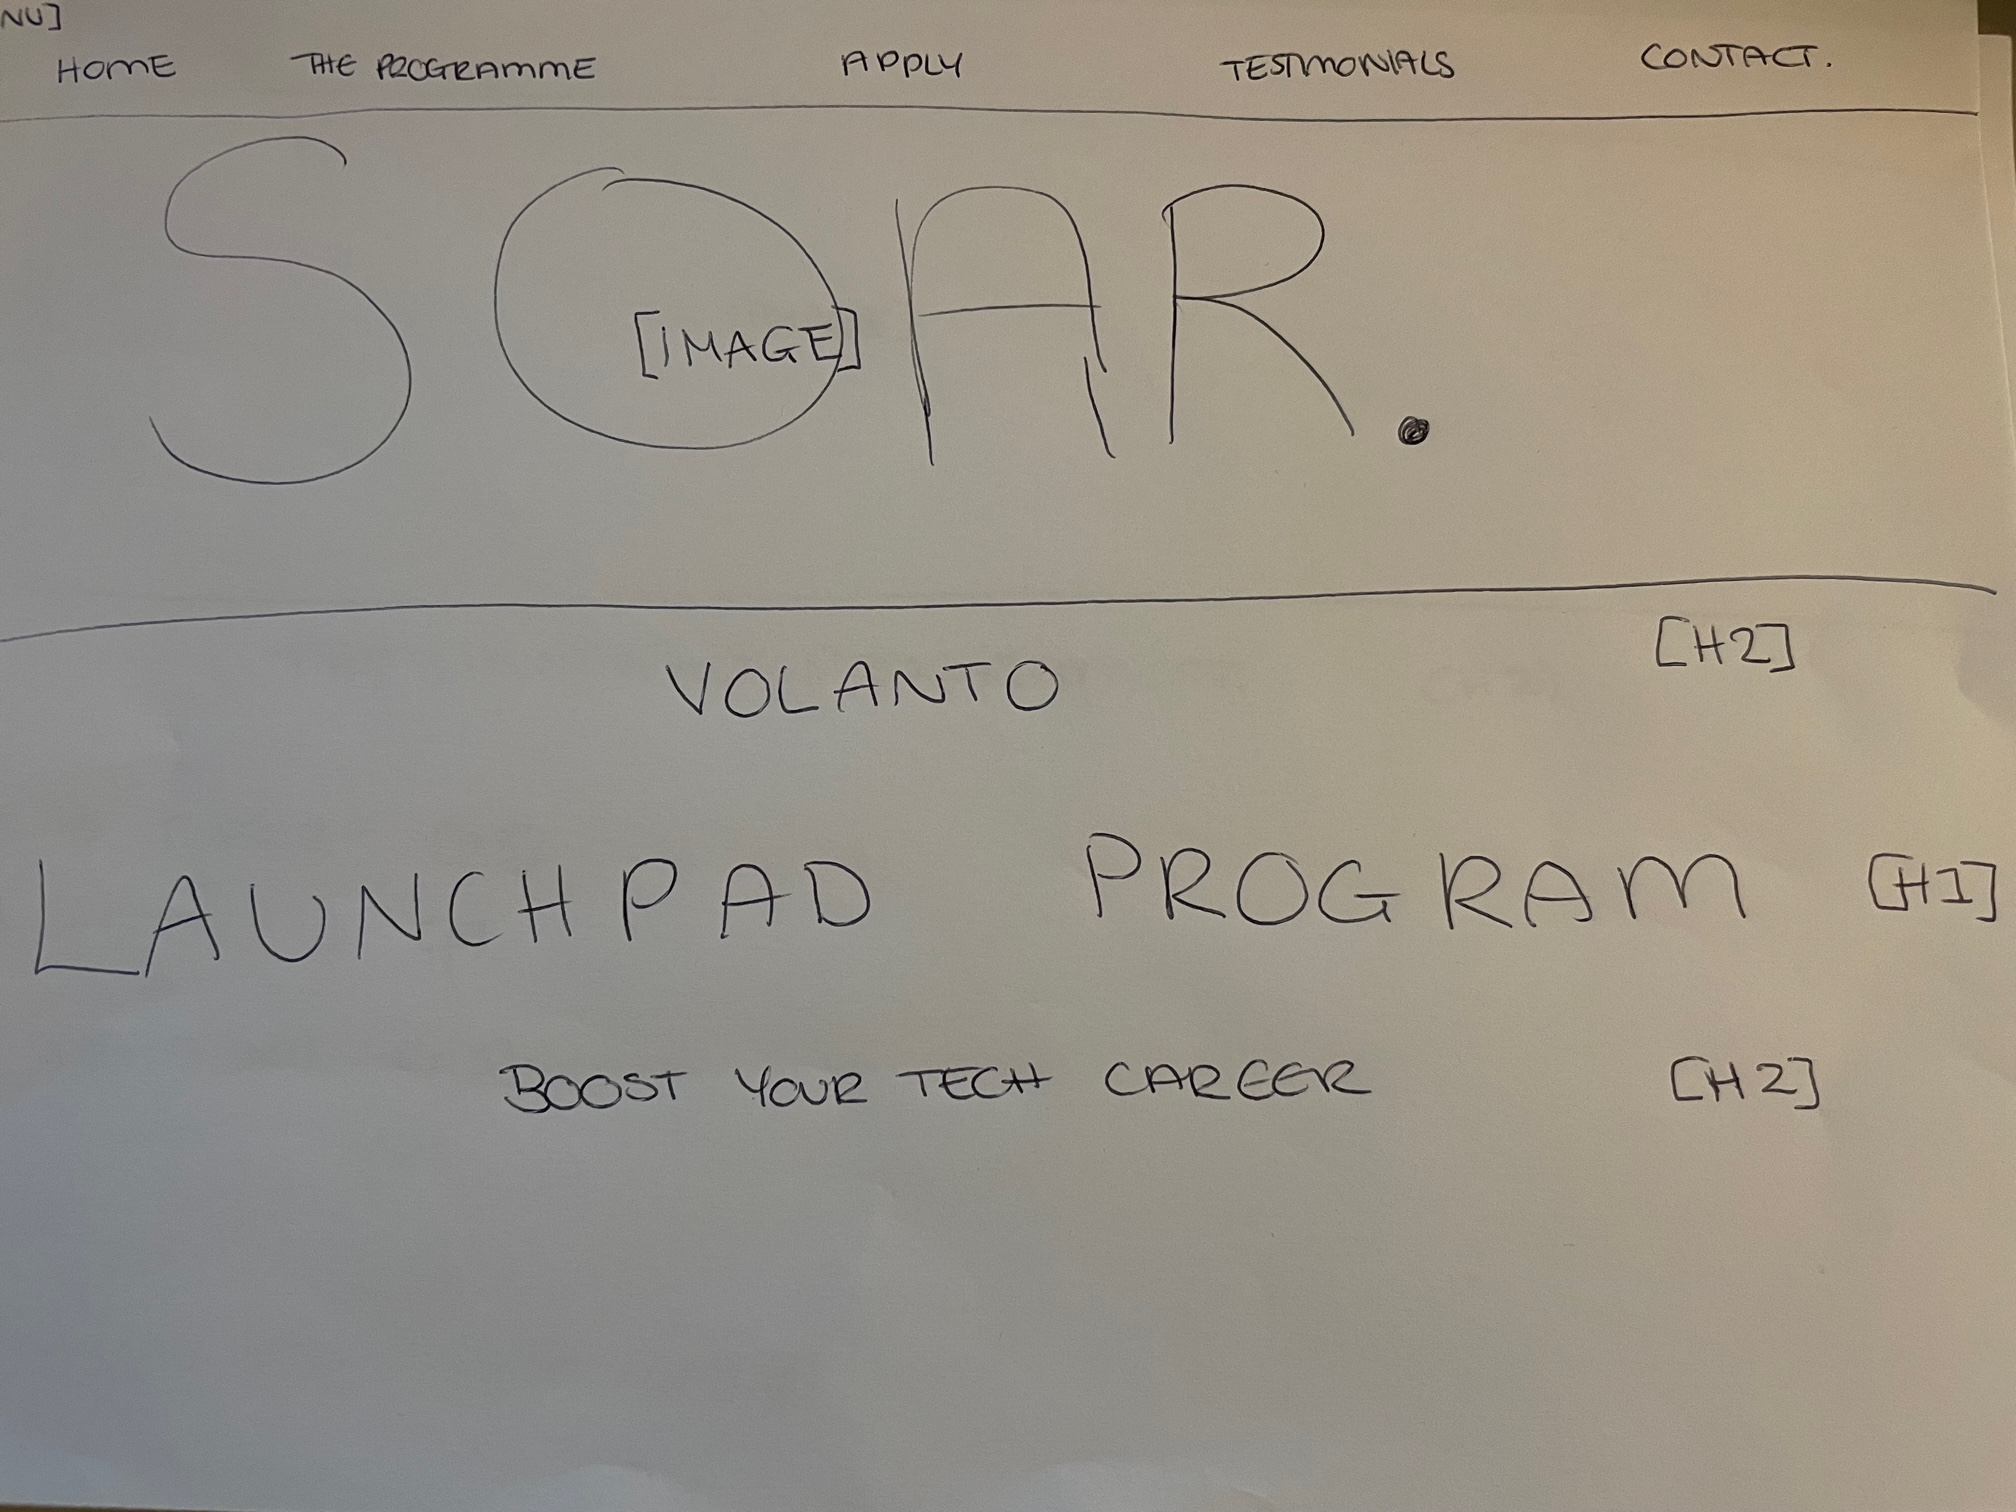 NU]
HOME THE PROGRAMME APPLY TESTIMONIALS CONTACT.
SOAR.
[IMAGE]
VOLANTO [H2]
LAUNCHPAD PROGRAM [H1]
BOOST YOUR TECH CAREER [H2]